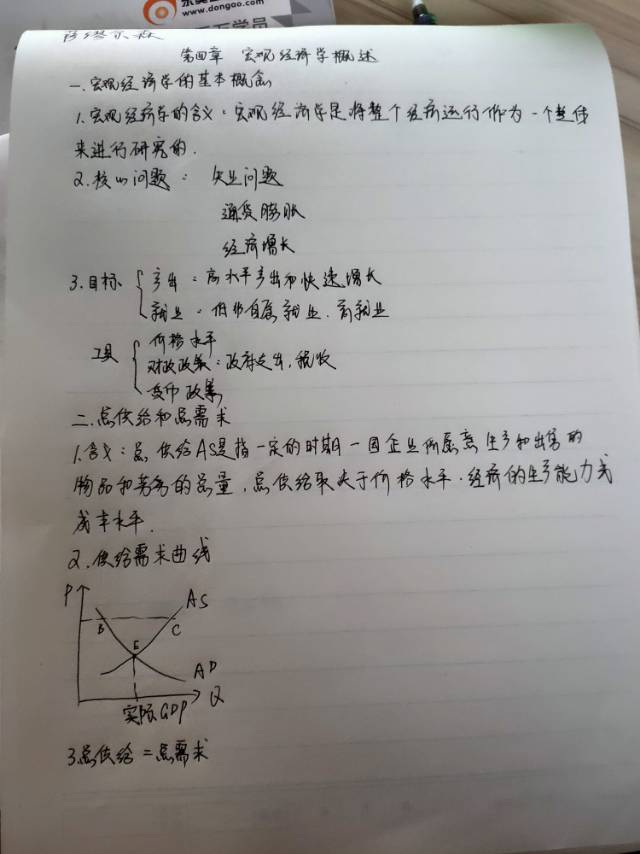 www.dongao.com
百万学员
萨缪尔森
第四章 宏观经济学概述
一.宏观经济学的基本概念
1.宏观经济学的含义:宏观经济学是将整个经济运行作为一个整体
来进行研究的.
2.核心问题: 失业问题
通货膨胀
经济增长
3.目标 产出:高水平产出和快速增长
就业:低非自愿就业.高就业
价格水平
工具 财政政策:政府支出,税收
货币政策
二.总供给和总需求
1.含义:总供给AS是指一定的时期一国企业所愿意生产和出售的
物品和劳务的总量,总供给取决于价格水平.经济的生产能力或
成本水平.
2.供给需求曲线
P AS
B C
E
AD
Q
实际GDP
3总供给=总需求